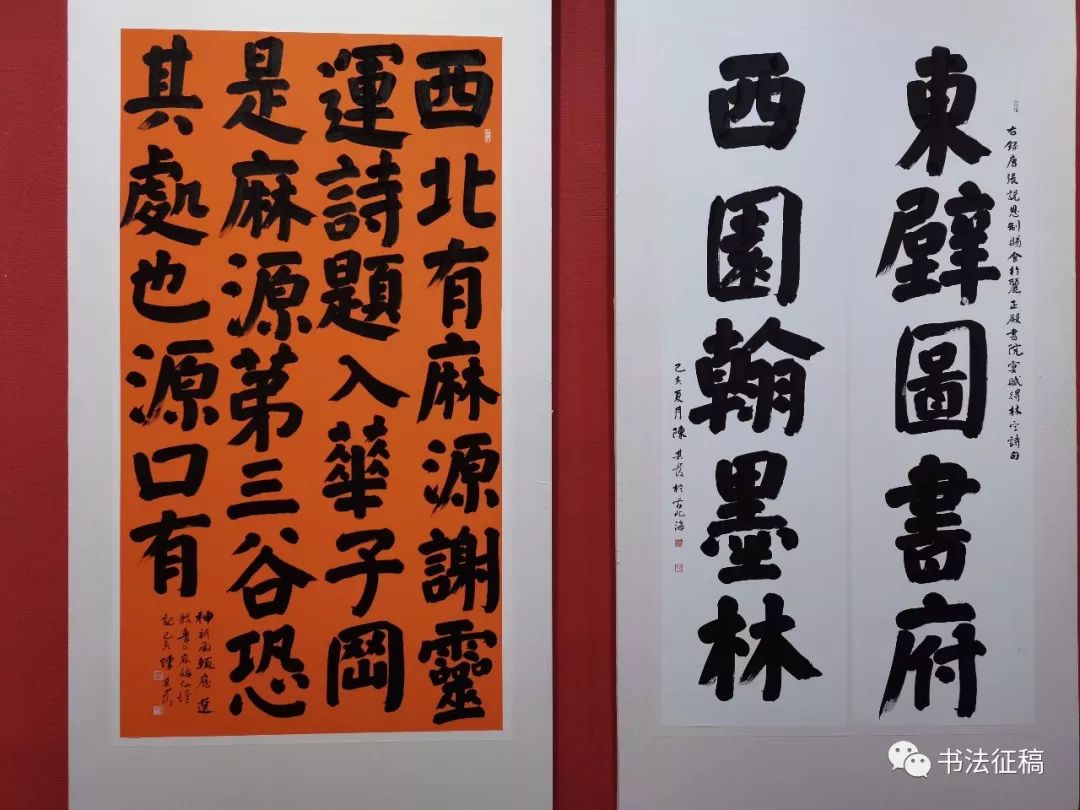 東壁圖書府
西園翰墨林
右錄唐張說恩制賜食於麗正殿書院宴賦得林字詩句
己亥夏月陳其發於古北海
西北有麻源謝靈
運詩題入華子岡
是麻源第三谷恐
其處也源口有
神祈雨輒應選
顏魯公麻姑仙壇
記己亥陳其發
书法征稿